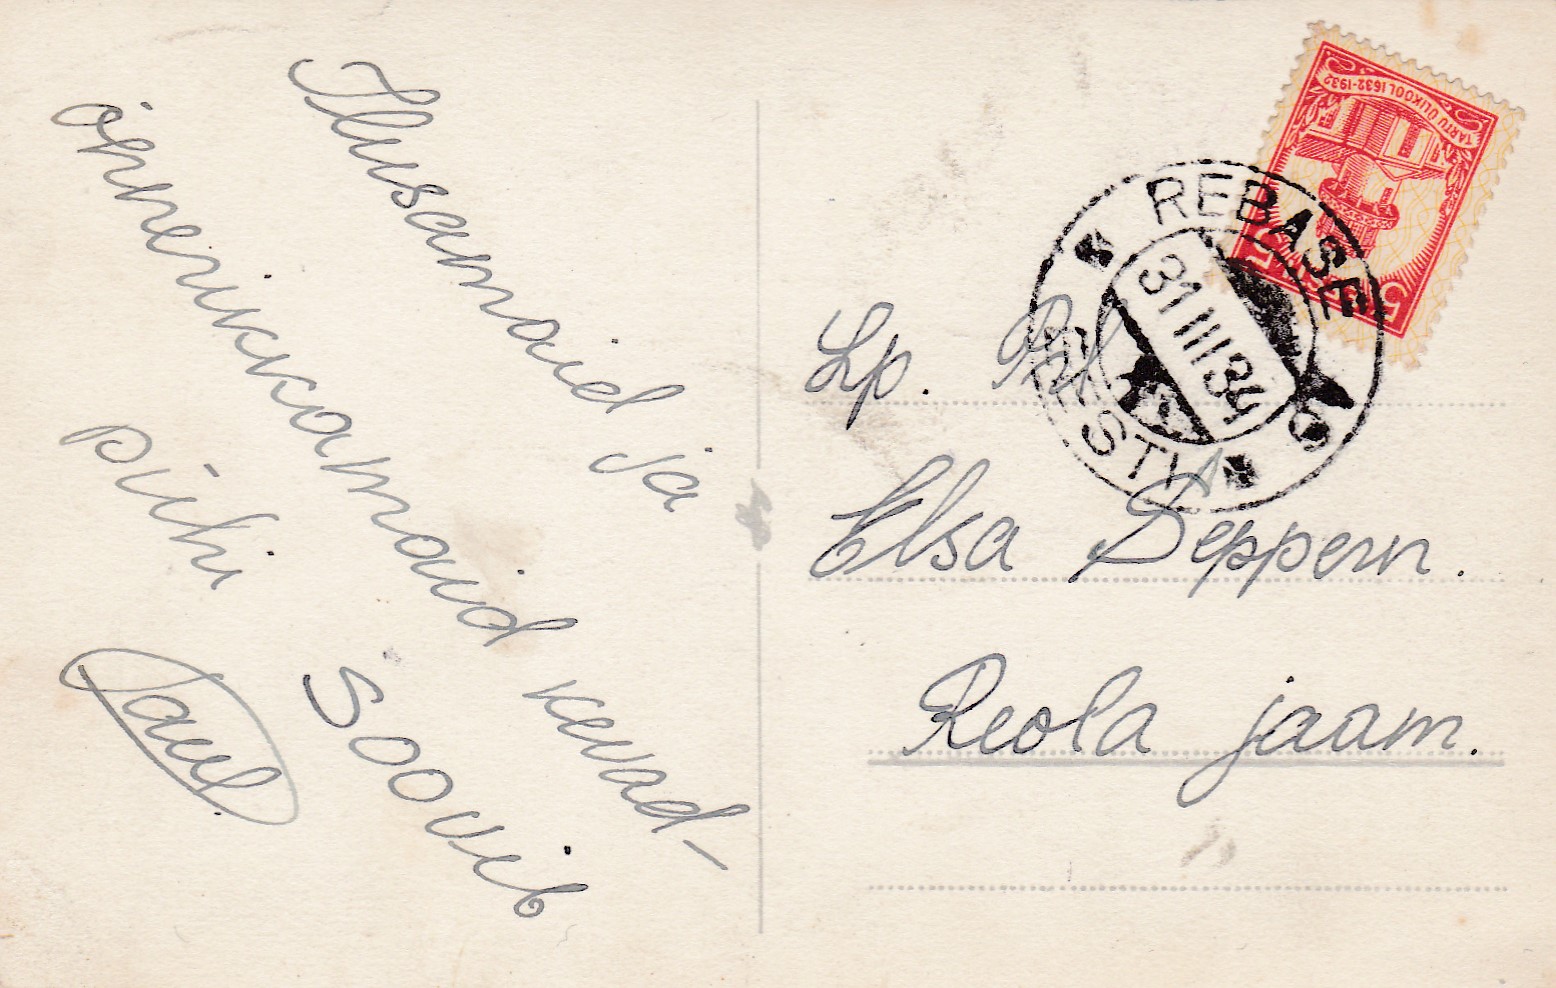 Ilusamaid ja
õnnerikkamaid kevad-
pühi
soovib
Paul.
TARTU ÜLIKOOL 1632-1932
5 5
REBASE
31 III 34
EESTI
Lp. Prl.
Elsa Seppern.
Reola jaam.